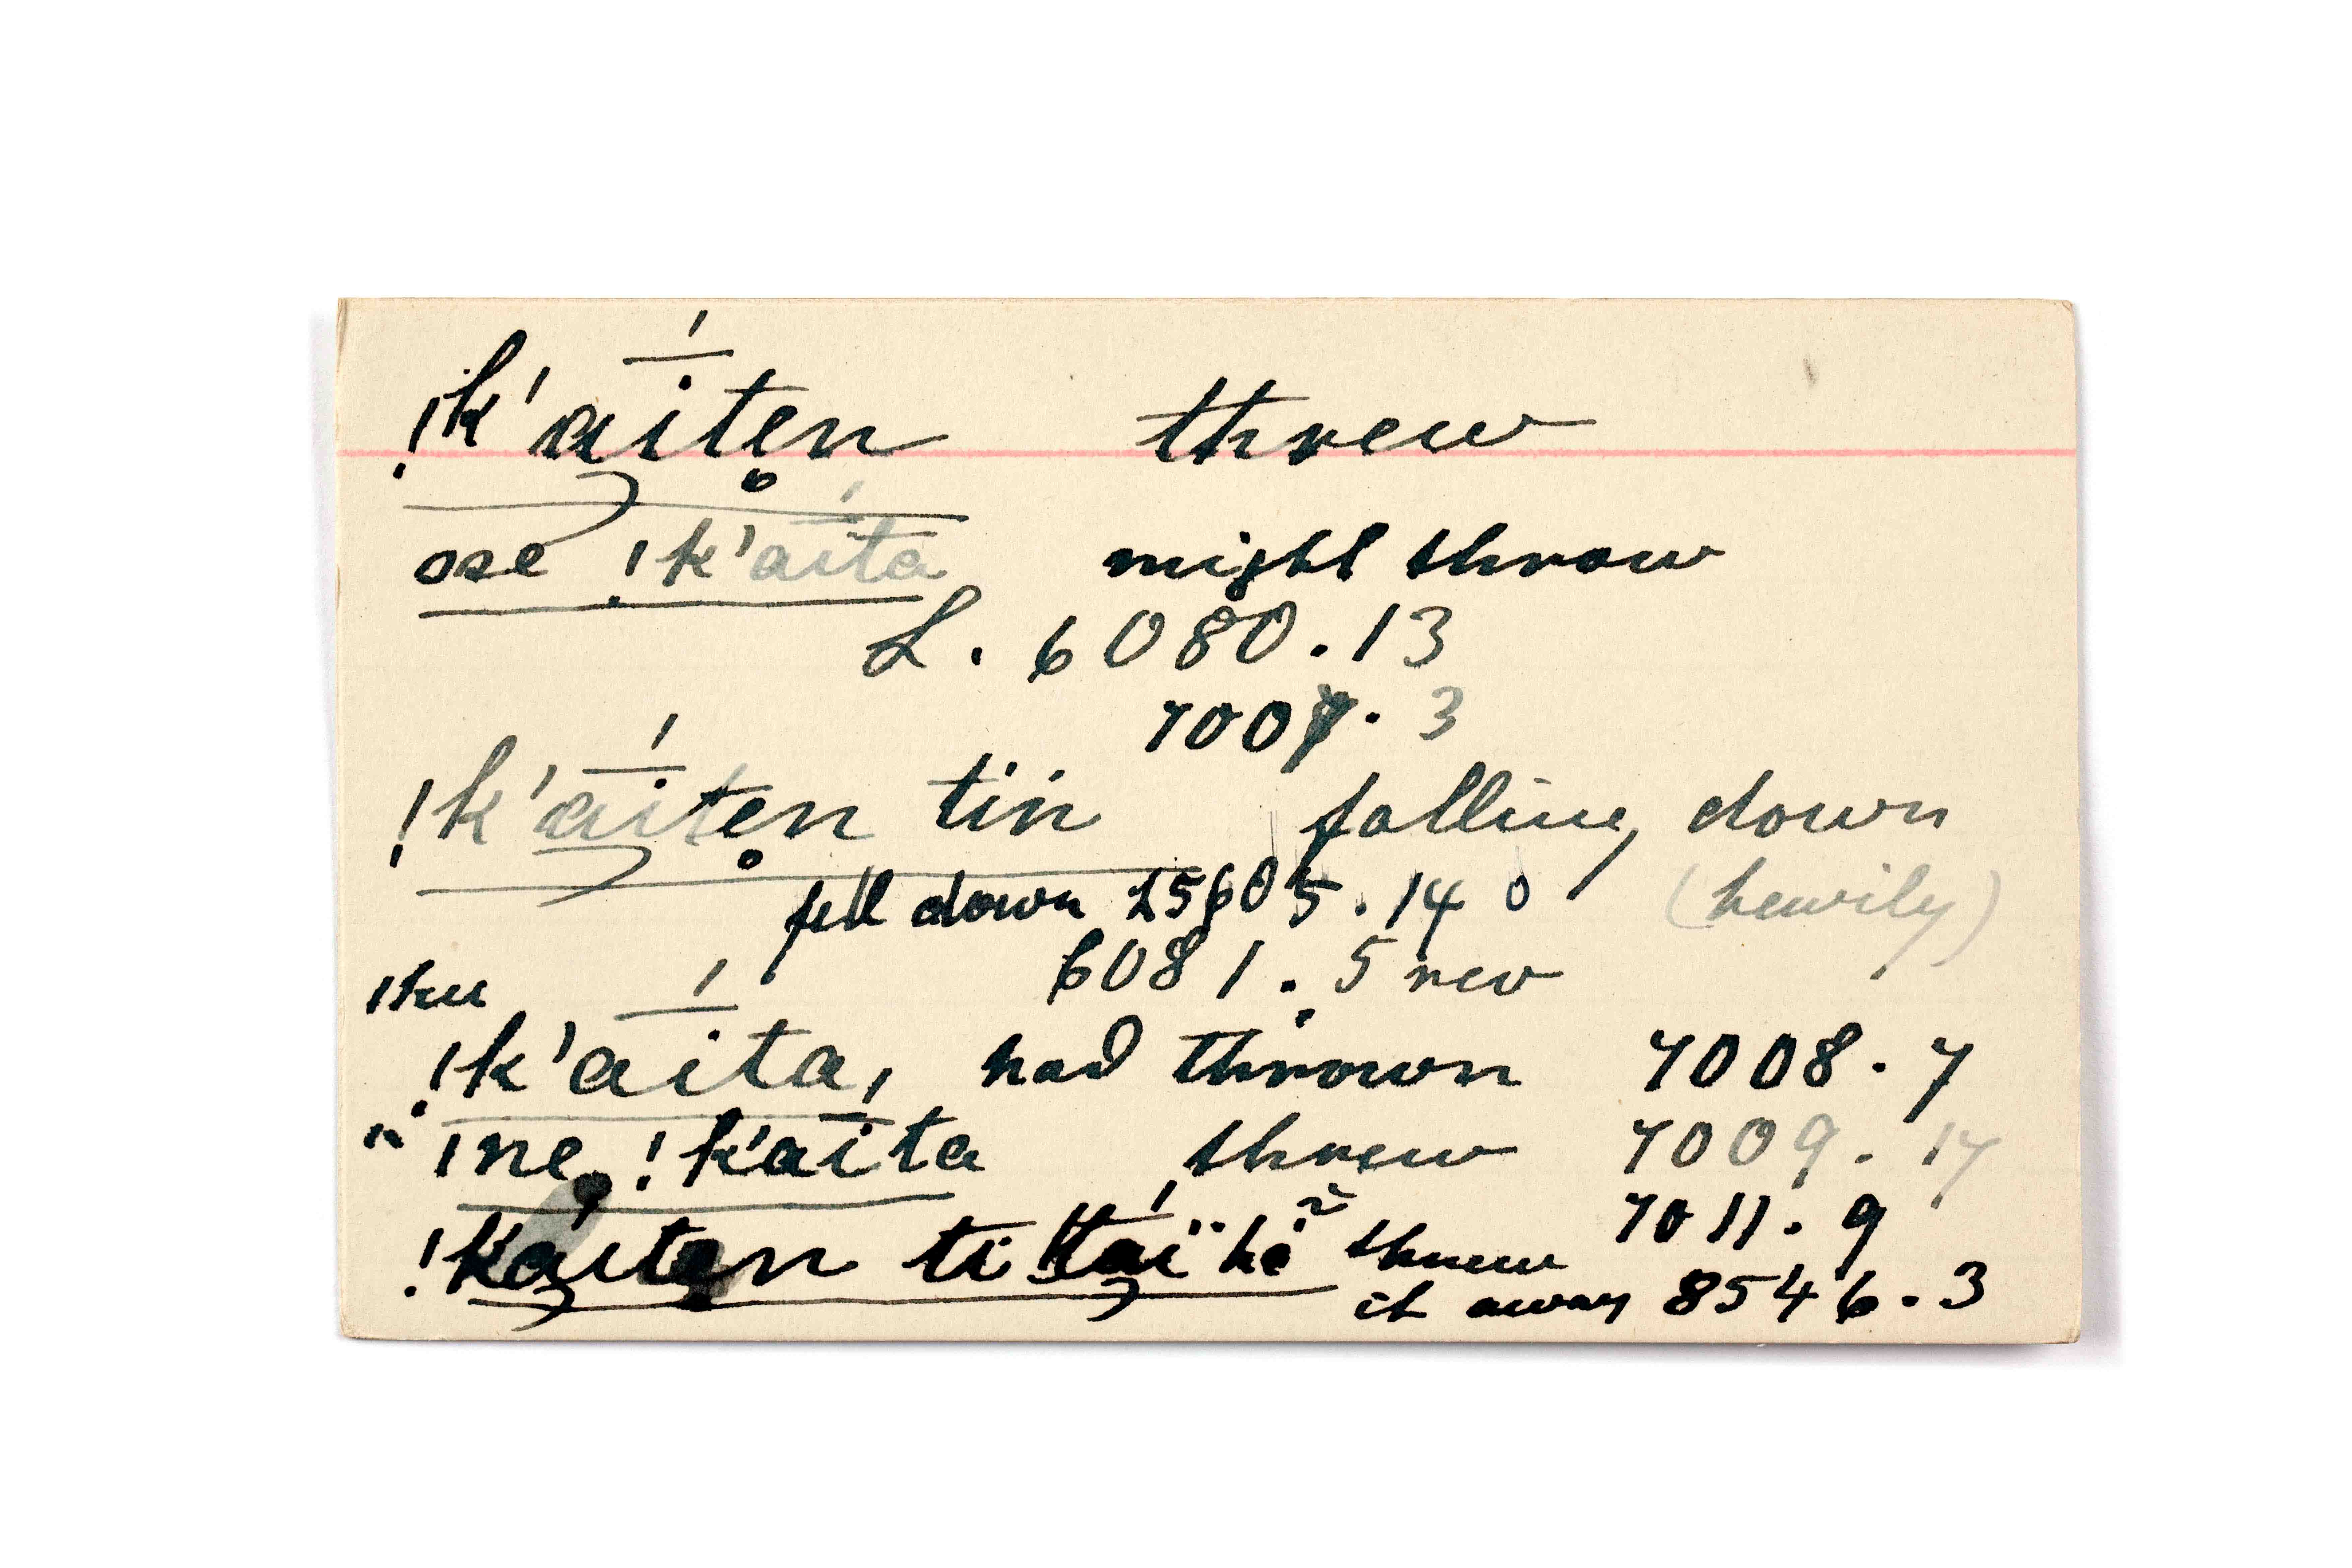 !k'aíten threw
ose !k'aíta might throw
L. 6080.13
7007.3
!k'aíten tin falling down
(heavily)
fell down L5605.14
6081.5 rev
!k'aíta, had thrown 7008.7
" ıne !k'aíta threw 7009.17
7011.9
!k'aíten ti threw
it away 8546.3